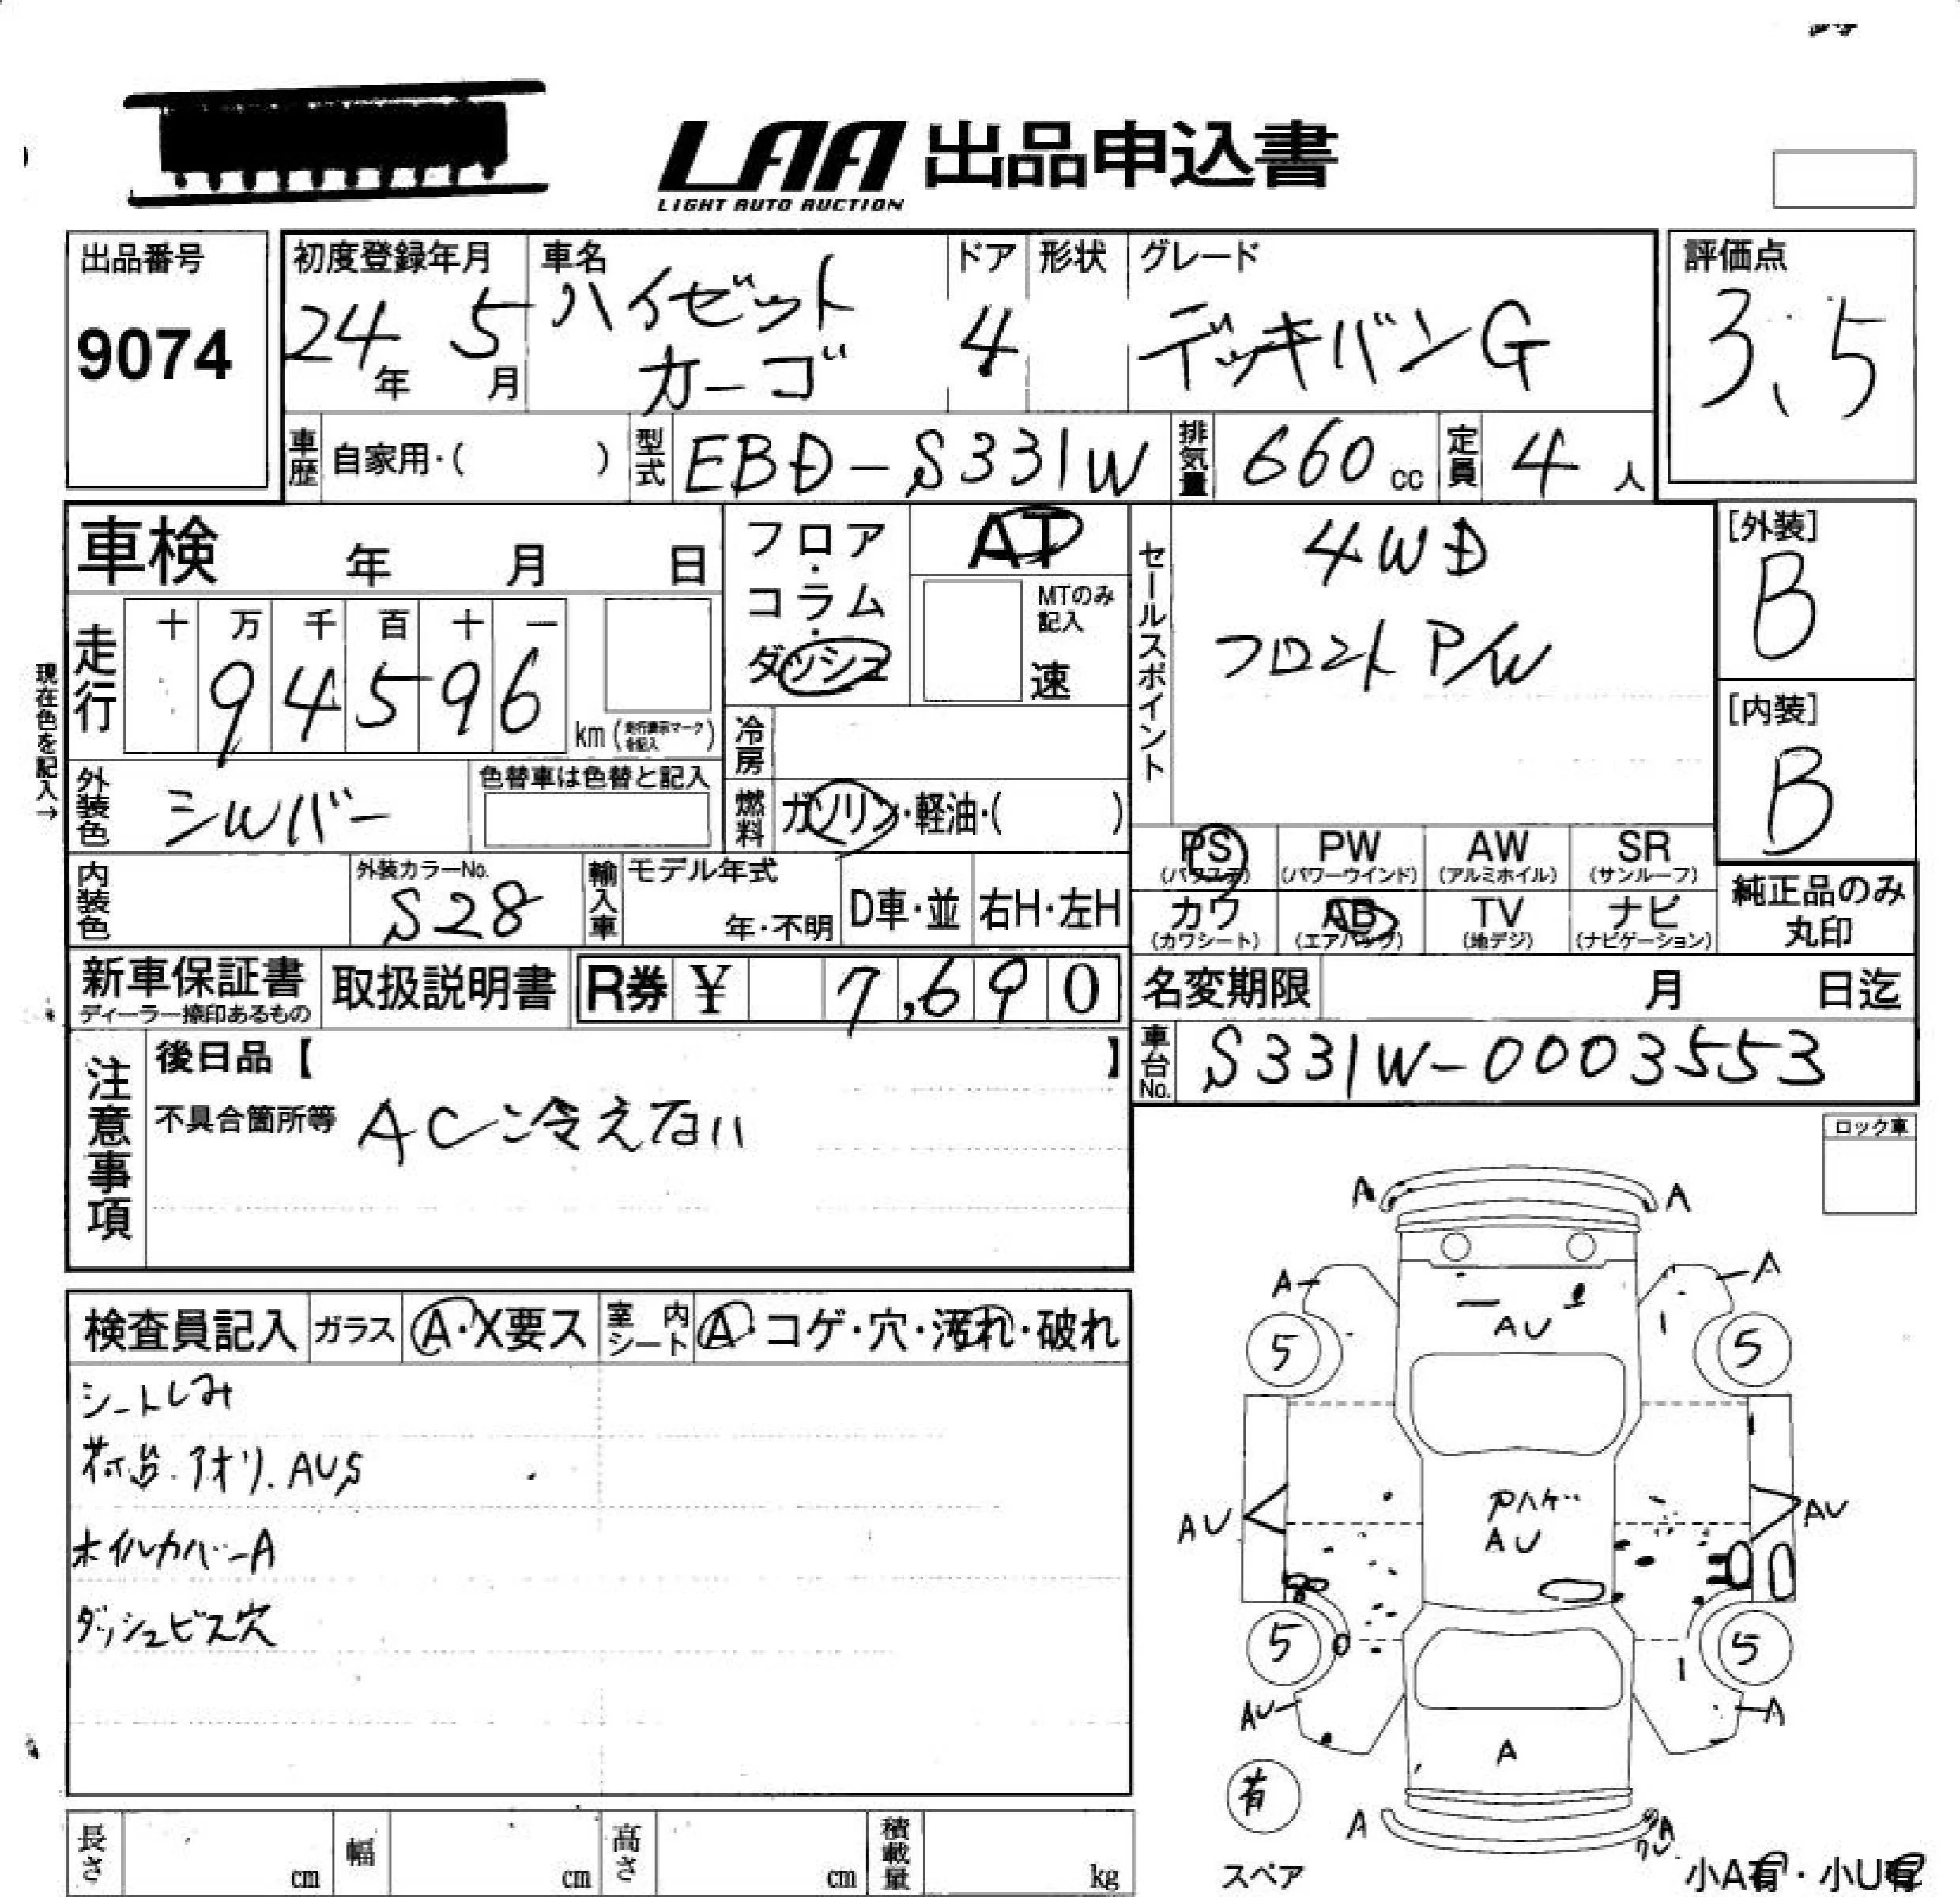 LAA 出品申込書
LIGHT AUTO AUCTION
出品番号
9074
初度登録年月
24年 5月
車名
ハイゼット
カーゴ
ドア
4
形状
グレード
デッキバンG
評価点
3.5
車歴
自家用・( )
型式
EBD-S331W
排気量
660 cc
定員
4 人
車検 年 月 日
フロア・コラム・ダッシュ
AT
MTのみ記入
速
セールスポイント
4WD
フロントP/W
[外装]
B
[内装]
B
現在色を記入→
走行
十 万 千 百 十 一
9 4 5 9 6
km(走行表示マークを記入)
冷房
外装色
シルバー
色替車は色替と記入
燃料
ガソリン・軽油・( )
PS
(パワステ)
PW
(パワーウインド)
AW
(アルミホイル)
SR
(サンルーフ)
カワ
(カワシート)
AB
(エアバッグ)
TV
(地デジ)
ナビ
(ナビゲーション)
純正品のみ
丸印
内装色
外装カラーNo.
S28
輸入車
モデル年式
年・不明
D車・並
右H・左H
新車保証書
ディーラー捺印あるもの
取扱説明書
R券 ¥ 7,690
名変期限 月 日迄
車台No.
S331W-0003553
注意事項
後日品【 】
不具合箇所等 AC冷えない
ロック車
検査員記入
ガラス
A・X要ス
室内シート
A・コゲ・穴・汚れ・破れ
シートしみ
荷台.アオリ.AUS
ホイルカバーA
ダッシュビス穴
A A
A A
AU
5 5
Pハゲ
AU AU AU
5 5
AU A
A
有
スペア
A A
小A有・小U有
長さ cm
幅 cm
高さ cm
積載量 kg